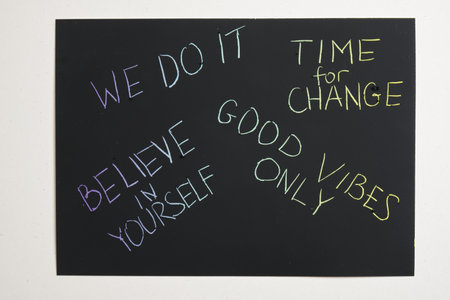 WE DO IT
TIME
for
CHANGE
BELIEVE
IN
YOURSELF
GOOD VIBES
ONLY